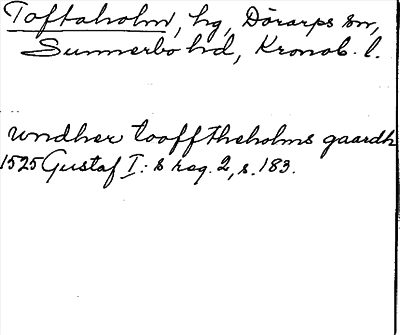 Toftaholm, hg, Dörarps sn,
Sunnerbo hd, Kronob. l.
undher toofftheholms gaardh
1525 Gustaf I:s reg. 2, s. 183.